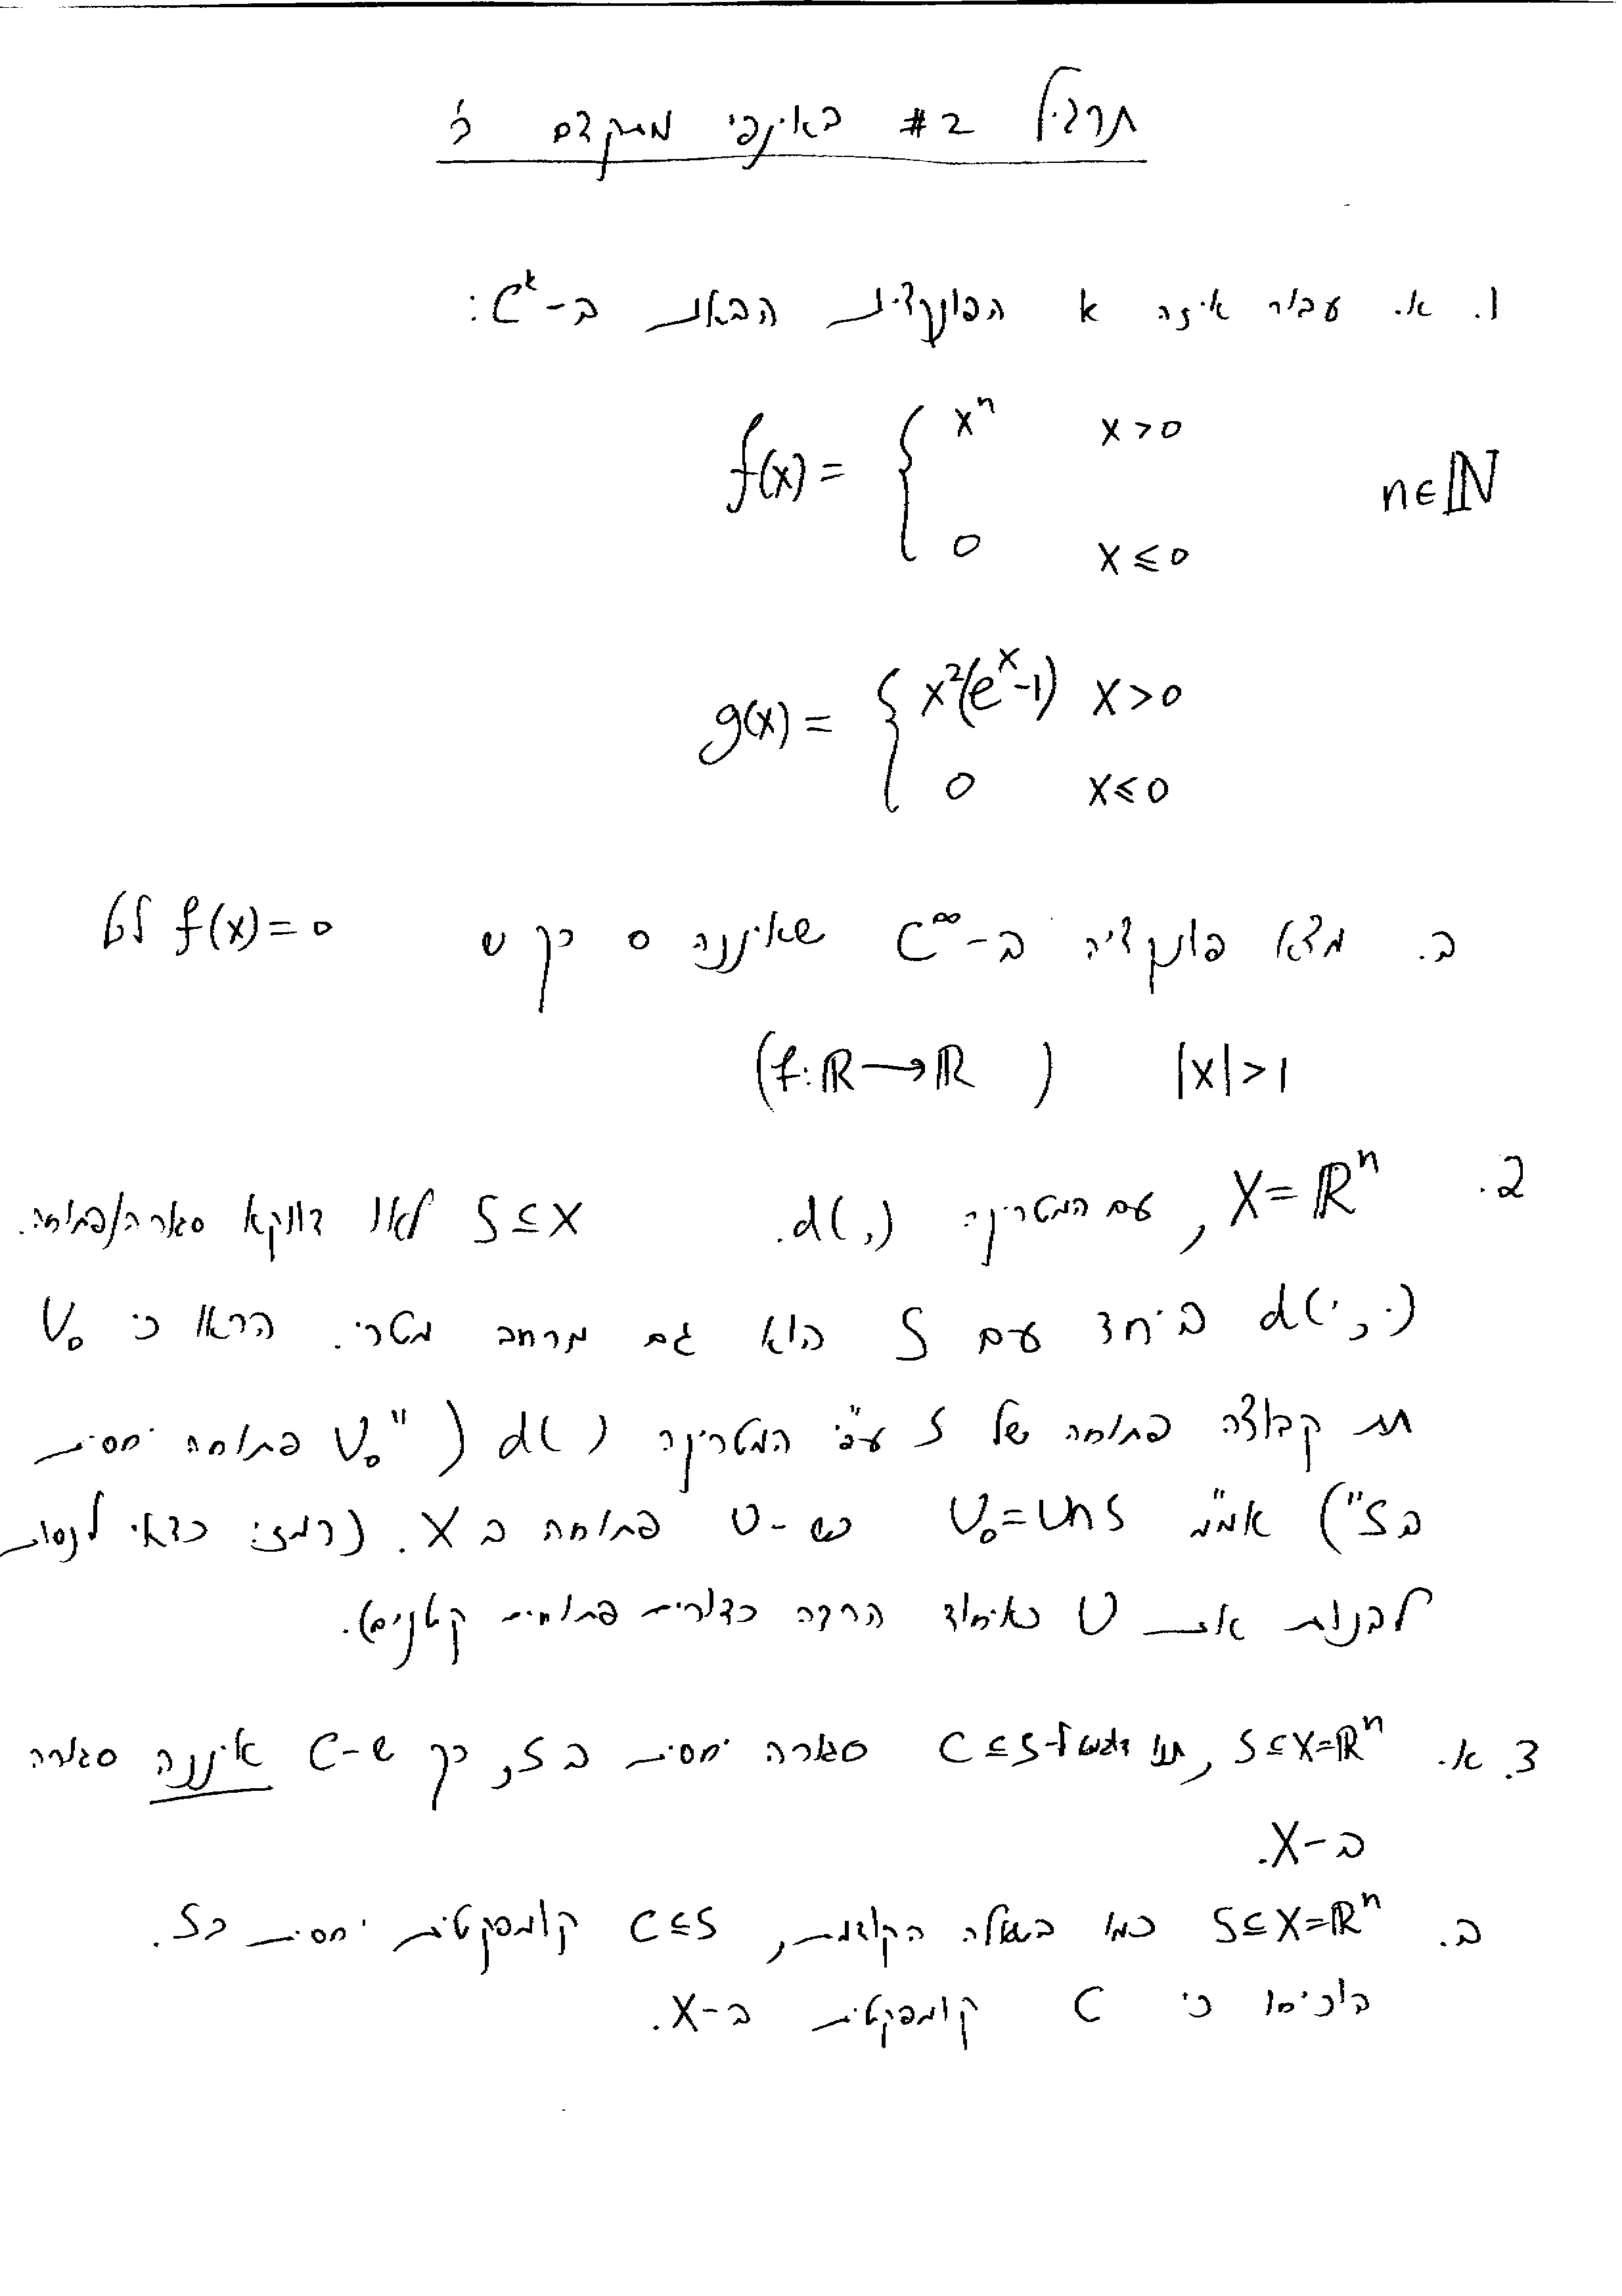 תרגיל #2 באינפי מתקדם ב׳
1. א. עבור איזה k הפונקציות הבאות ב-C^k:
f(x) = { x^n x>0
n∈ℕ
0 x≤0
g(x) = { x²(e^x-1) x>0
0 x≤0
ב. מצא פונקציה ב-C^∞ שאיננה 0 כך ש f(x)=0 לכל
|x|>1 (f:ℝ→ℝ)
2. X=ℝ^n, עם המטריקה d(,). S⊆X לאו דווקא סגורה/פתוחה.
d(·,·) ביחד עם S הוא גם מרחב מטרי. הראו כי U₀
תת קבוצה פתוחה של S ע"פ המטריקה d() ("U₀ פתוחה יחסית
בS") אמ"מ U₀=U∩S כש-U פתוחה ב X. (רמז: כדאי לנסות
לבנות את U כאיחוד הרבה כדורים פתוחים קטנים).
3. א. S⊆X=ℝ^n, תנו דוגמא ל-C⊆S סגורה יחסית ב S, כך ש-C איננה סגורה
ב-X.
ב. S⊆X=ℝ^n כמו בשאלה הקודמת, C⊆S קומפקטית יחסית בS.
הוכיחו כי C קומפקטית ב-X.